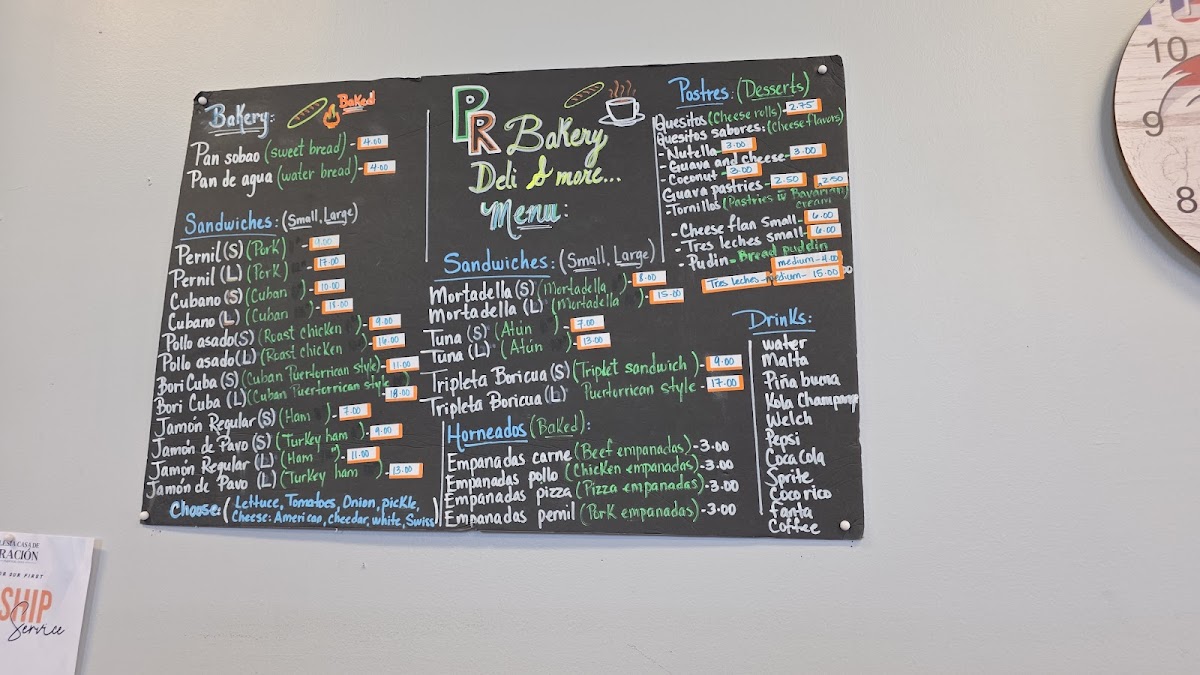 Bakery: Baked
Pan sobao (sweet bread) - 4.00
Pan de agua (water bread) - 4.00
Sandwiches: (Small, Large)
Pernil (S) (Pork) -
Pernil (L) (Pork) - 17.00
Cubano (S) (Cuban) - 10.00
Cubano (L) (Cuban) - 18.00
Pollo asado (S) (Roast chicken) - 9.00
Pollo asado (L) (Roast chicken) - 16.00
Bori Cuba (S) (Cuban Puertorrican style) - 11.00
Bori Cuba (L) (Cuban Puertorrican style) 18.00
Jamón Regular (S) (Ham) - 7.00
Jamón de Pavo (S) (Turkey ham) - 9.00
Jamón Regular (L) (Ham) - 11.00
Jamón de Pavo (L) (Turkey ham) - 13.00
Choose: (Lettuce, Tomatoes, Onion, pickle,
Cheese: American, chedar, white, Swiss)
PR Bakery
Deli & more...
Menu:
Sandwiches: (Small, Large)
Mortadella (S) (Mortadella) - 8.00
Mortadella (L) (Mortadella) - 15.00
Tuna (S) (Atún) - 7.00
Tuna (L) (Atún) - 13.00
Tripleta Boricua (S) (Triplet sandwich) - 9.00
Tripleta Boricua (L) Puertorrican style - 17.00
Horneados (Baked):
Empanadas carne (Beef empanadas) - 3.00
Empanadas pollo (Chicken empanadas) - 3.00
Empanadas pizza (Pizza empanadas) - 3.00
Empanadas pernil (Pork empanadas) - 3.00
Postres: (Desserts)
Quesitos (Cheese rolls) - 2.75
Quesitos sabores: (Cheese flavors)
- Nutella - 3.00
- Guava and cheese - 3.00
- Coconut - 3.00
Guava pastries - 2.50 2.50
- Tornillos (Pastries w Bavarian
cream
- Cheese flan Small - 6.00
- Tres leches small - 6.00
- Pudin - Bread puddin
medium - 4.00
Tres leches - medium - 15.00
Drinks:
water
Malta
Piña buena
Kola Champange
Welch
Pepsi
Coca Cola
Sprite
Coco rico
Fanta
Coffee
10
9
8
CASA DE
RACIÓN
OUR FIRST
SHIP
Service